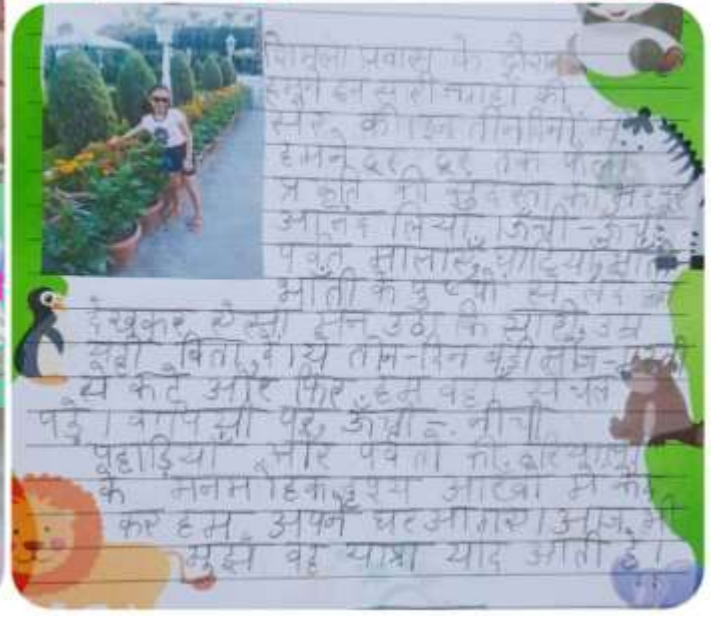 शिमला प्रवास के दौरान
हमने इन सारी जगहों की
सैर की। इन तीन दिनों में
हमने दूर दूर तक फैली
प्रकृति की सुंदरता का भरपूर
आनंद लिया। ऊँची-ऊँची
पर्वत मालाएँ, घाटियाँ,
भाँती के पुष्पों से लदे
देखकर ऐसा मन उठा कि सारी उम्र
यही बिता दे। ये तीन-दिन बड़ी मौज-मस्ती
से कटे और फिर हम वहाँ से चल
पड़े। वापिसी पर ऊँची - नीची
पहाड़ियों और पर्वतों की हरियाली
के मनमोहक दृश्य आँखों में कैद
कर हम अपने घर आ गए। आज भी
मुझे वह यात्रा याद आती है।